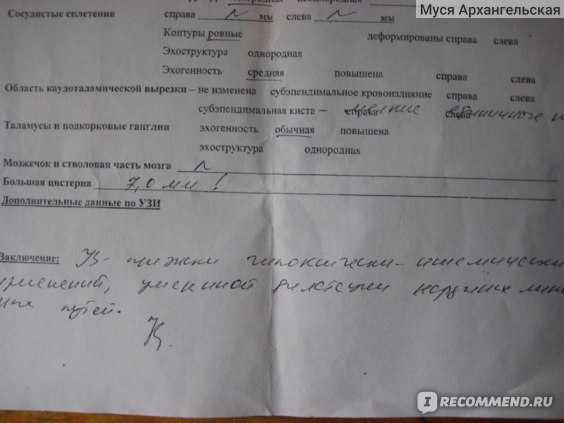 Муся Архангельская
Сосудистые сплетения справа N мм слева N мм
Контуры ровные деформированы справа слева
Эхоструктура однородная
Эхогенность средняя повышена справа слева
Область каудоталамической вырезки – не изменена субэпендимальное кровоизлияние справа слева
субэпендимальная киста – справа слева
Таламусы и подкорковые ганглии эхогенность обычная повышена
эхоструктура однородная
Мозжечок и стволовая часть мозга N
Большая цистерна 7,0 мм !
Дополнительные данные по УЗИ
Заключение: УЗ-признаки гипоксически-ишемических
изменений, умеренной дилатации наружных лик
ных путей.
IRECOMMEND.RU